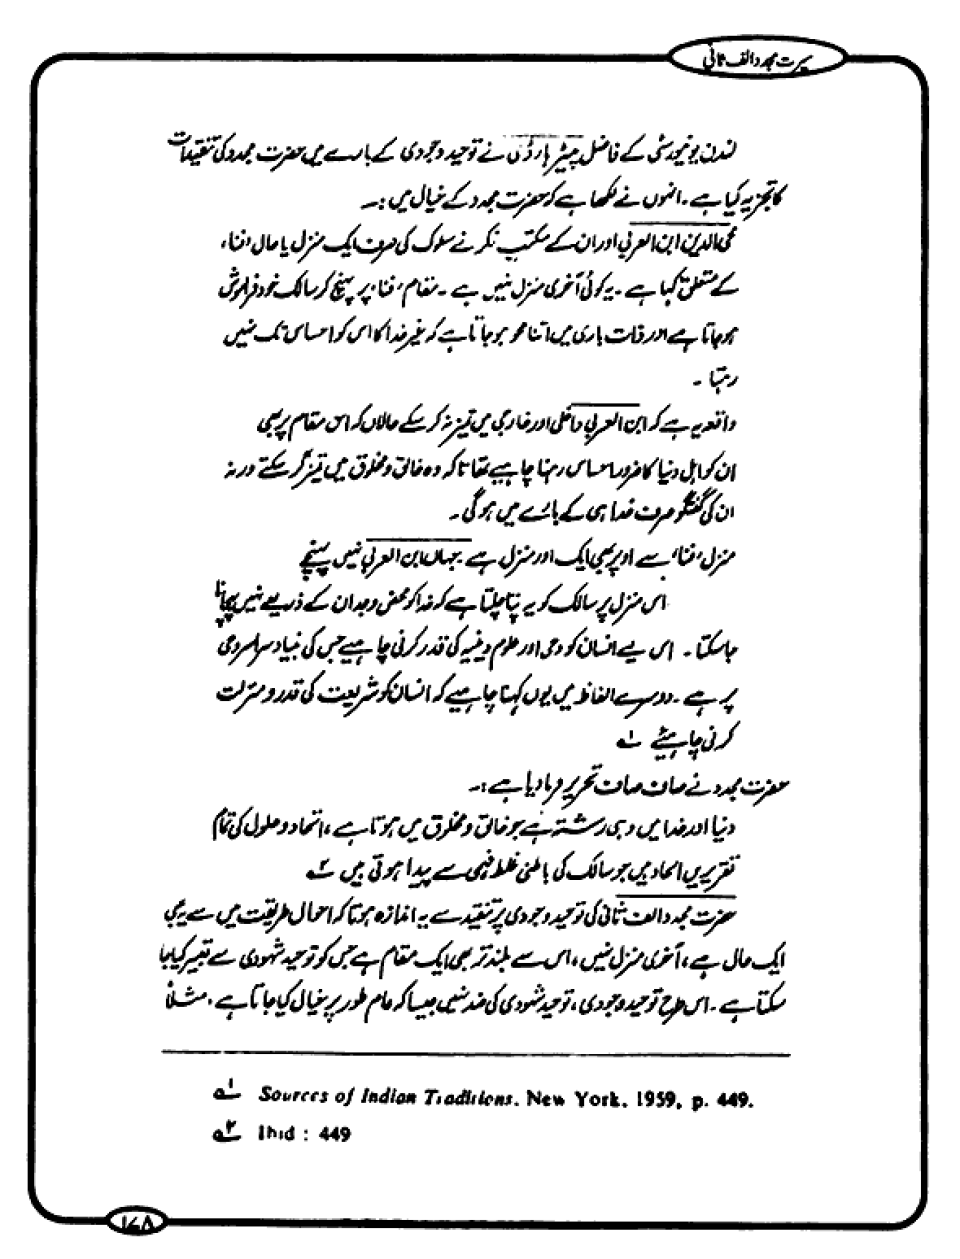 سیرت مجدد الف ثانی
لندن یونیورسٹی کے فاضل پیٹر ہارڈی نے توحید وجودی کے بارے میں حضرت مجدد کی تنقیدات
کا تجزیہ کیا ہے۔ انہوں نے لکھا ہے کہ حضرت مجدد کے خیال میں :۔
محی الدین ابن العربی اور ان کے مکتب فکر نے سلوک کی صرف ایک منزل یا حال ’فنا‘
کے متعلق کہا ہے۔ یہ کوئی آخری منزل نہیں ہے۔ مقام ’فنا‘ پر پہنچ کر سالک خود فراموش
ہو جاتا ہے اور ذات باری میں اتنا محو ہو جاتا ہے کہ غیر خدا کا اس کو احساس تک نہیں
رہتا۔
واقعہ یہ ہے کہ ابن العربی داخلی اور خارجی میں تمیز نہ کر سکے حالاں کہ اس مقام پر بھی
ان کو اہل دنیا کا ضرور احساس رہنا چاہیے تھا تاکہ وہ خالق و مخلوق میں تمیز کر سکتے ورنہ
ان کی گفتگو صرف خدا ہی کے بارے میں ہوگی۔
منزل ’فنا‘ سے اوپر بھی ایک اور منزل ہے۔ جہاں ابن العربی نہیں پہنچے
اس منزل پر سالک کو یہ پتا چلتا ہے کہ خدا کو محض وجدان کے ذریعے نہیں پہچانا
جا سکتا۔ اس لیے انسان کو وحی اور علوم دینیہ کی قدر کرنی چاہیے جس کی بنیاد سراسر وحی
پر ہے۔ دوسرے الفاظ میں یوں کہنا چاہیے کہ انسان کو شریعت کی قدر و منزلت
کرنی چاہیئے ۱؎
حضرت مجدد نے صاف صاف تحریر فرمادیا ہے :۔
دنیا اور خدا میں وہی رشتہ ہے جو خالق و مخلوق میں ہوتا ہے، اتحاد و حلول کی تمام
تقریریں الحاد ہیں جو سالک کی باطنی غلط فہمی سے پیدا ہوتی ہیں ۲؎
حضرت مجدد الف ثانی کی توحید وجودی پر تنقید سے یہ اندازہ ہوتا کہ احوال طریقت میں سے یہ بھی
ایک حال ہے، آخری منزل نہیں، اس سے بلند تر بھی ایک مقام ہے جس کو توحید شہودی سے تعبیر کیا جا
سکتا ہے۔ اس طرح توحید وجودی، توحید شہودی کی ضد نہیں جیسا کہ عام طور پر خیال کیا جاتا ہے، مثلاً
۱؎ Sources of Indian Traditions. New York. 1959, p. 449.
۲؎ Ibid : 449
۱۶۸